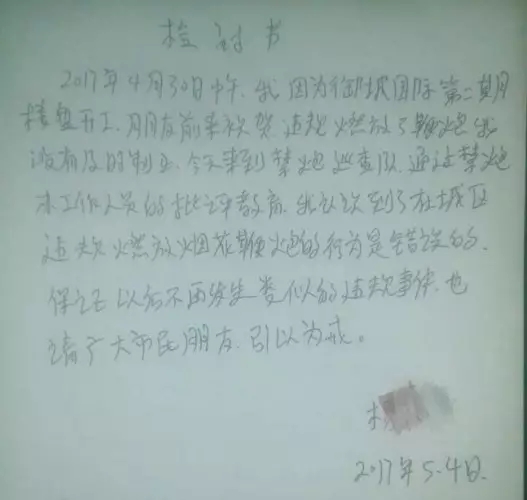 检讨书
2017年4月30日中午,我因为御城国际第二期
楼盘开工,朋友前来祝贺违规燃放了鞭炮我
没有及时制止,今天来到禁炮巡查队,通过禁炮
办工作人员的批评教育,我认识到了在城区
违规燃放烟花鞭炮的行为是错误的,
保证以后不再发生类似的违规事件,也
请广大市民朋友,引以为戒。
2017年5.4日.